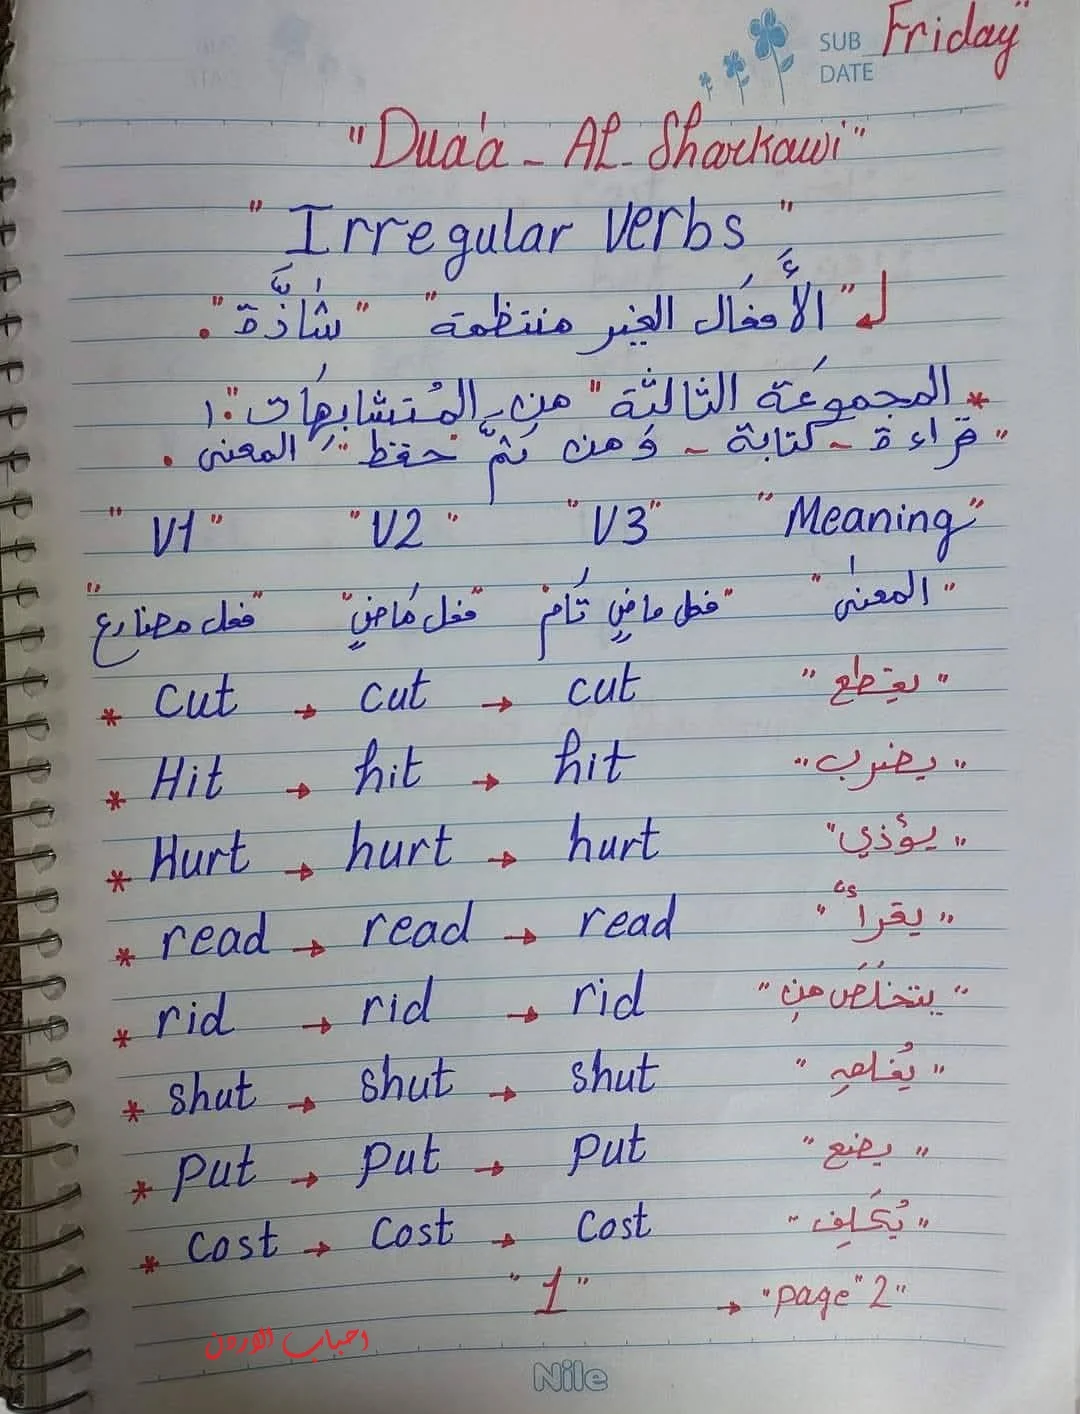 SUB Friday"
DATE
"Dua'a - AL - Sharkawi"
" Irregular verbs "
"الأفعَال الغير منتظمة" "شاذَّة".
* المجموعَة الثالثة" من المُتشابهَات":
"قراءة - كتابة - وَمن ثمَّ "حفظ" المعنى.
"V1" "V2" "V3" "Meaning"
"فعل مضارع" "فعل مَاضٍ" "فعل ماضٍ تَام" "المعنى"
* cut → cut → cut "يقطع"
* Hit → hit → hit "يضرب"
* Hurt → hurt → hurt "يؤذي"
* read → read → read "يقرأ"
* rid → rid → rid "يتخلَص من"
* shut → shut → shut "يُغلق"
* put → put → put "يضع"
* cost → cost → cost "يُكَلِف"
"1" → "page "2"
احباب الاردن
Nile